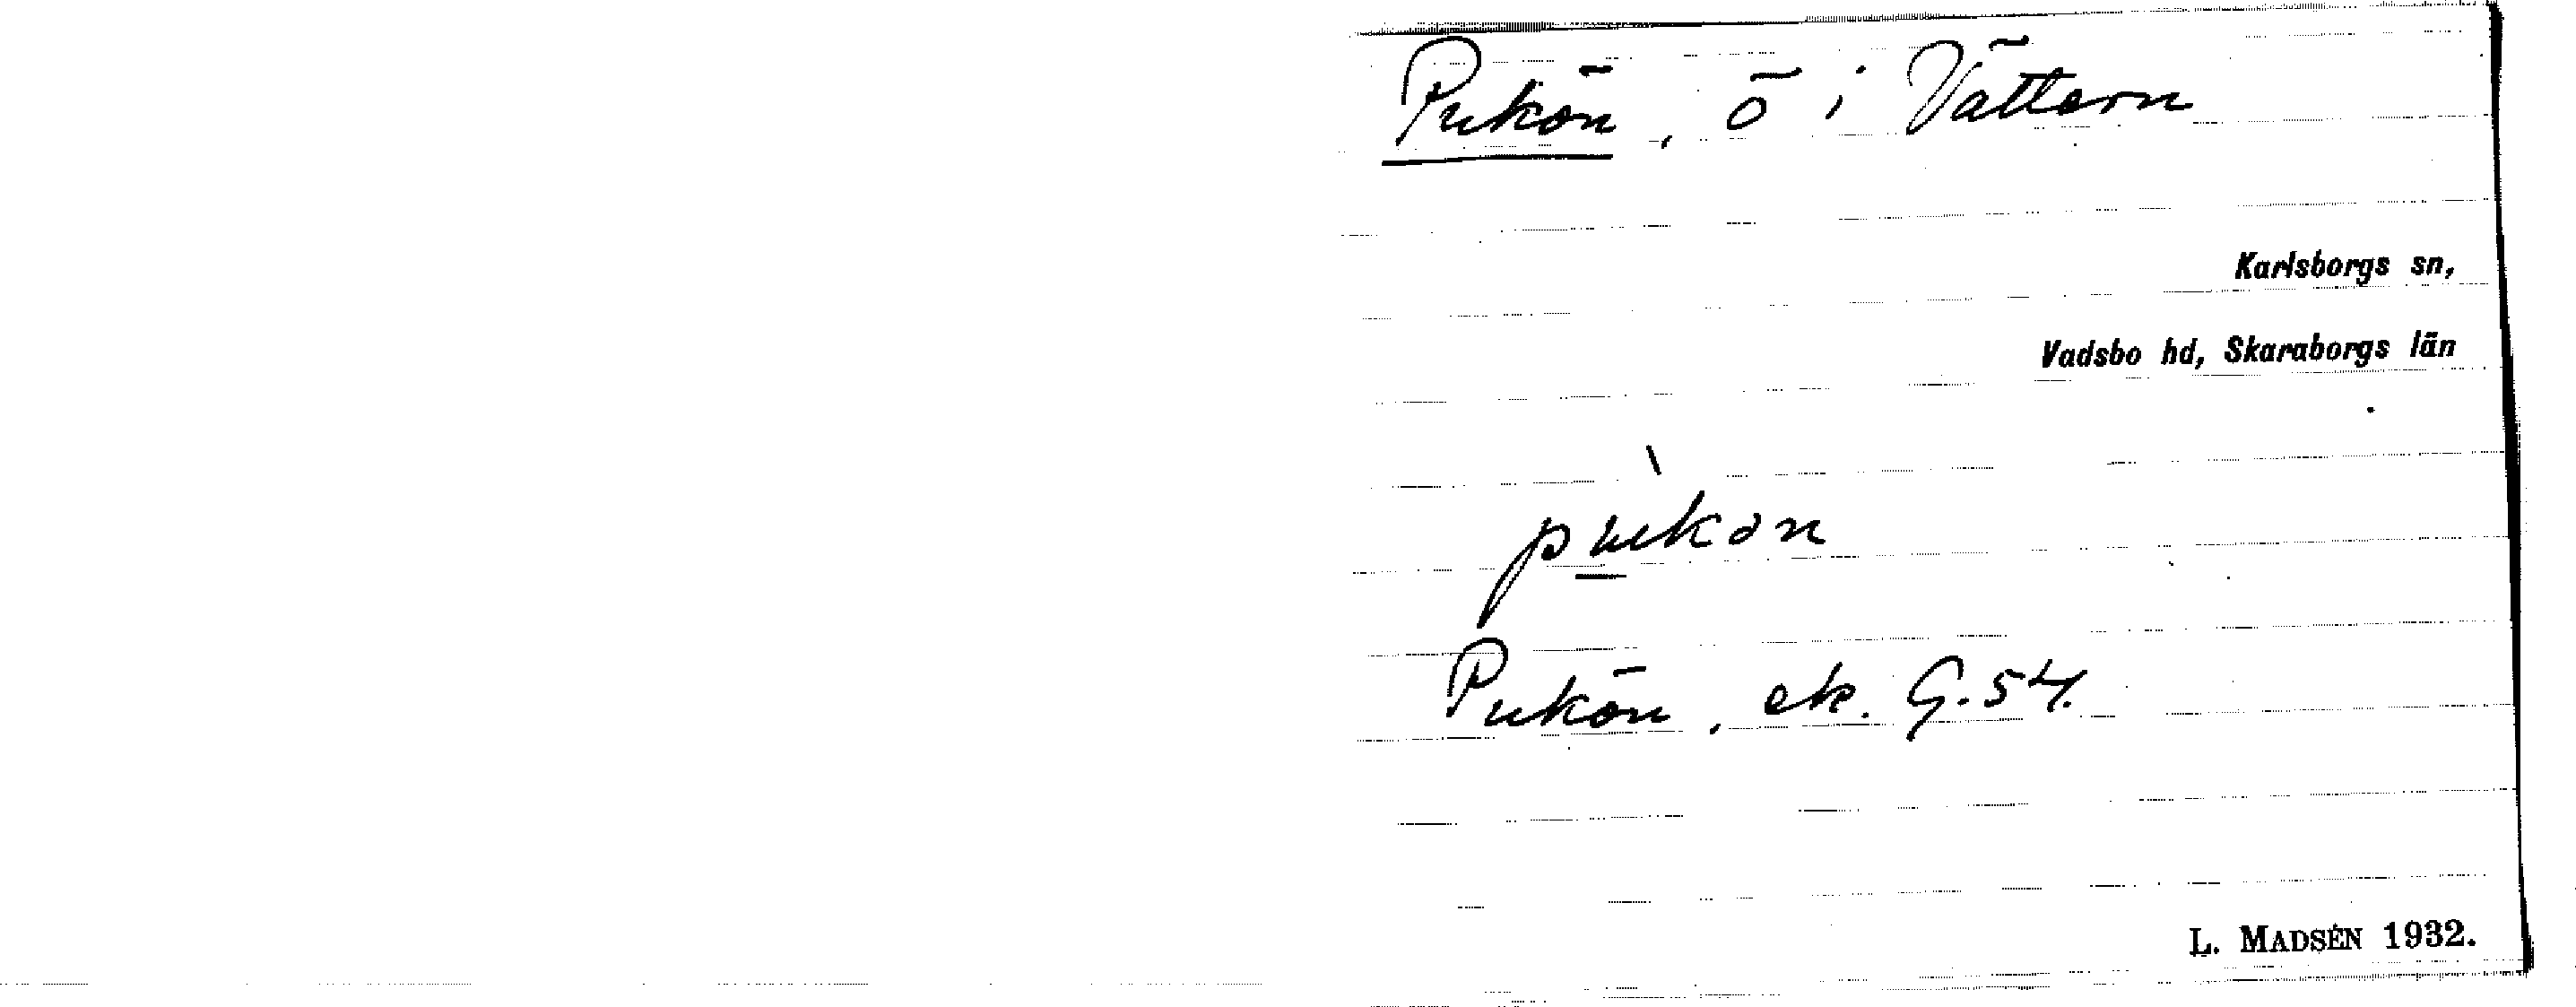 Pukön, ö i Vättern
Karlsborgs sn,
Vadsbo hd, Skaraborgs län
pùkön
Pukön, ek. G. 54.
L. MADSÉN 1932.